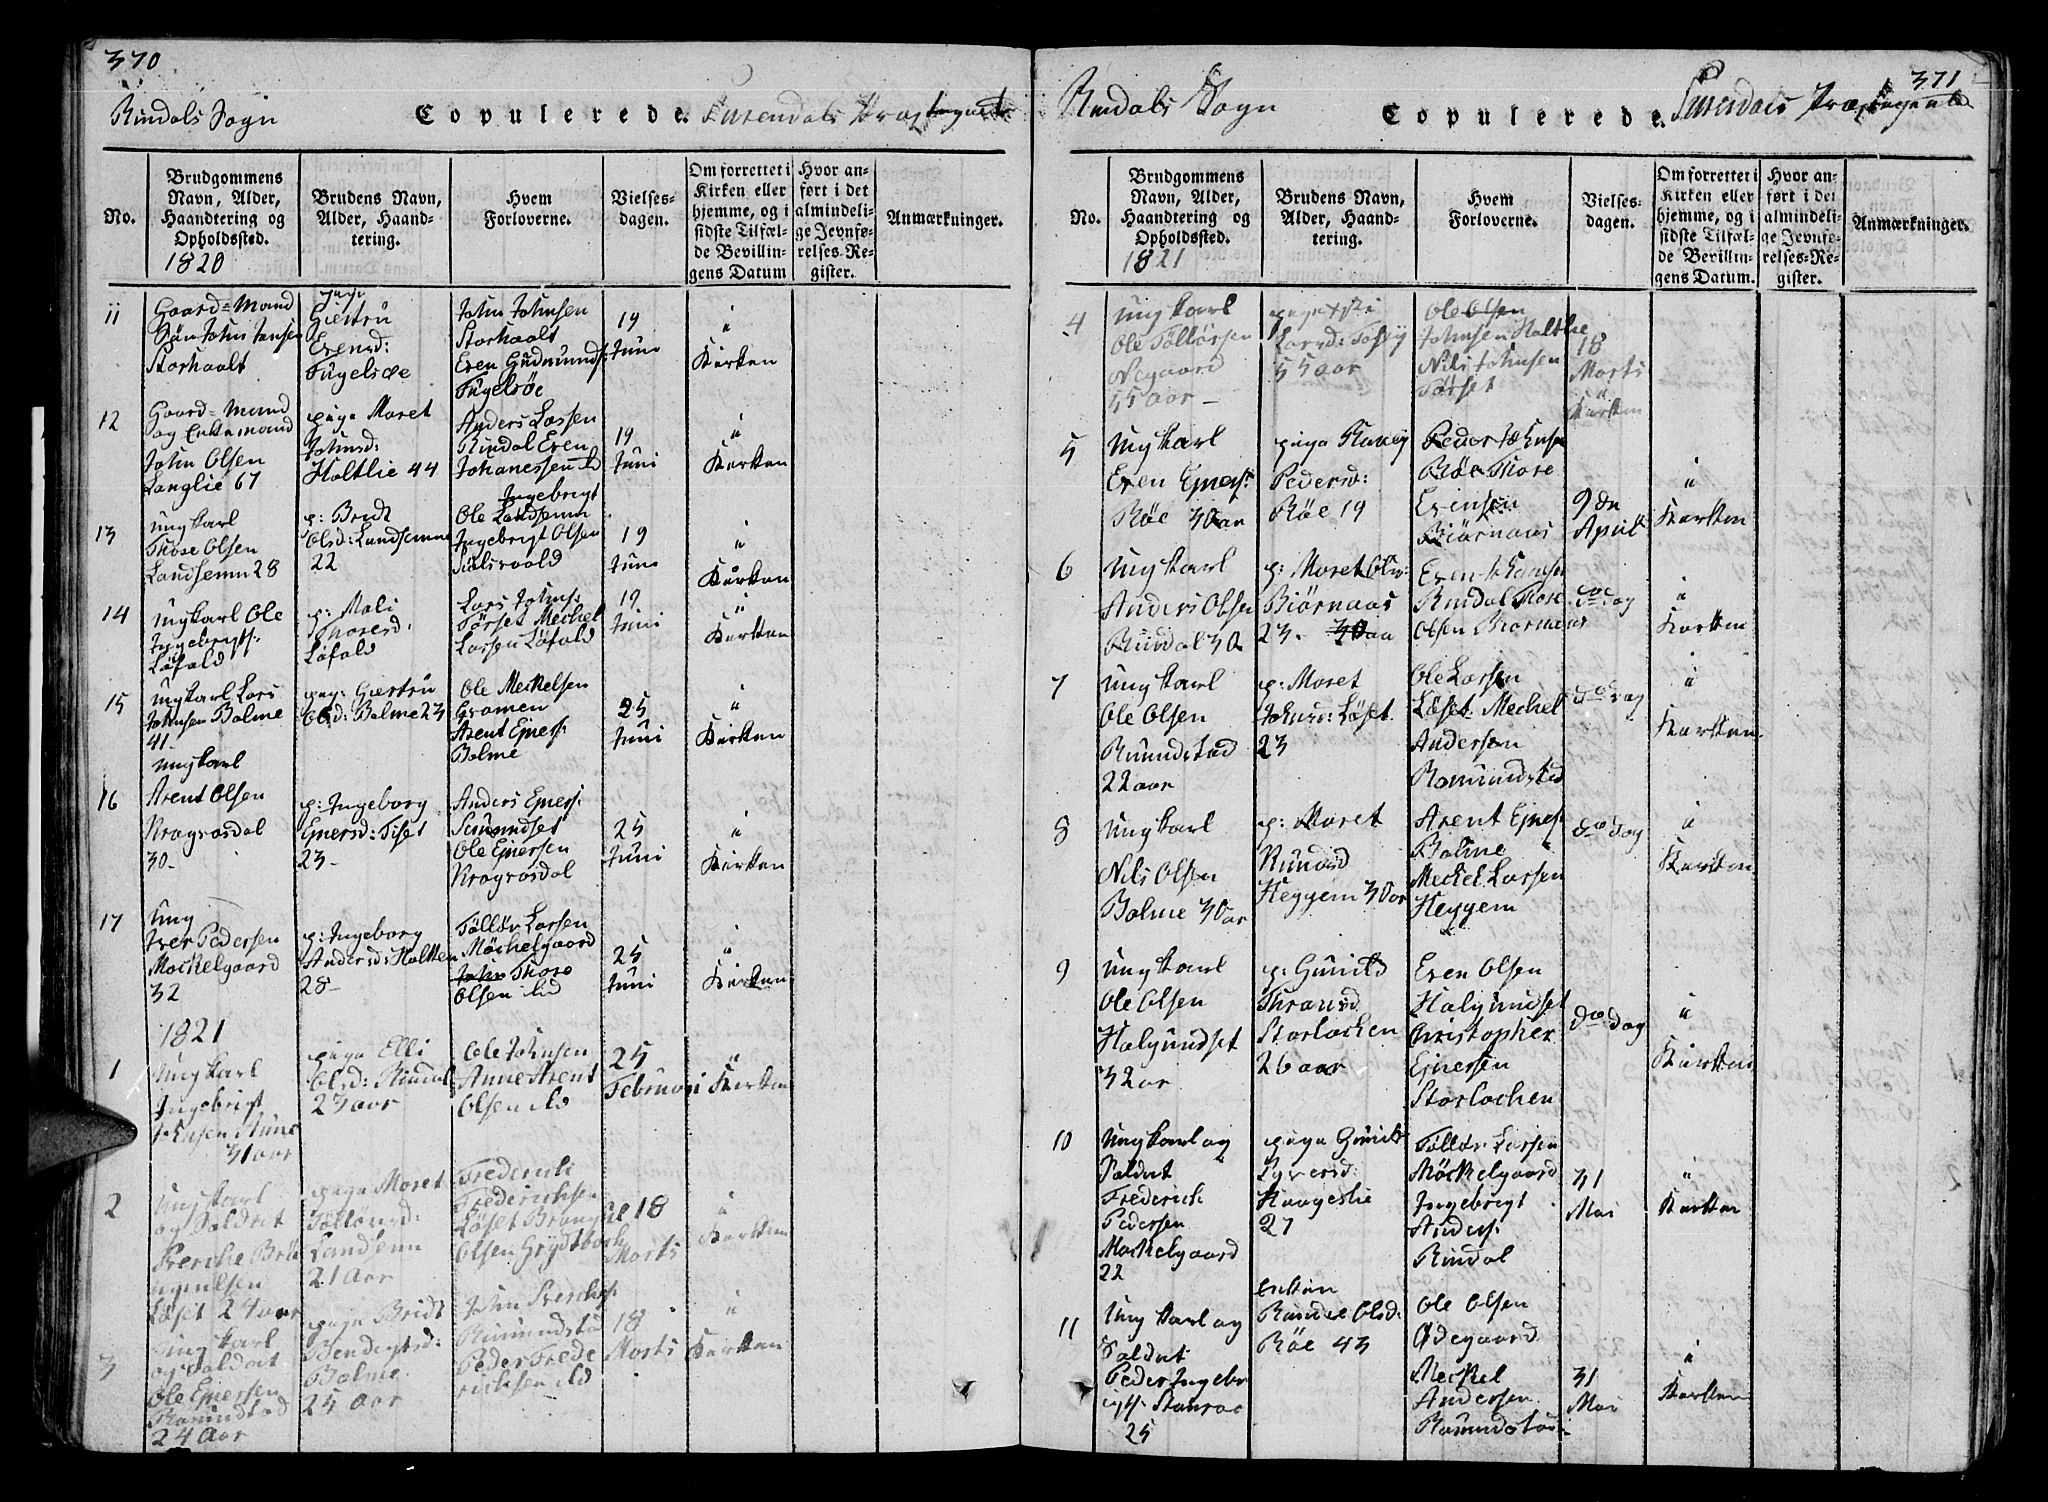 370
Rindals Sogn
Copulerede.
Surendals Præstegield
No.
Brudgommens
Navn, Alder,
Haandtering og
Opholdssted.
1820
Brudens Navn,
Alder, Haand-
tering.
Hvem
Forloverne.
Vielses-
dagen.
Om forrettet i
Kirken eller
hjemme, og i
sidste Tilfæl-
de Bevillin-
gens Datum
Hvor an-
ført i det
almindeli-
ge Jevnfø-
relses-Re-
gister.
Anmærkninger.
11
Gaard-Mand
John Jonsen
Storhaalt
pige
Giertru
Evensd:
Fugelsøe
John Johnsen
Storhaalt
Even Gudmunds:
Fugelsøe
19
Juni
"
Kirken
12
Gaard-Mand
og Enkemand
John Olsen
Langlie 67
pige Maret
Johnsd:
Haltlie 44
Anders Larsen
Rindal Even
Johanessen ibd
19
Juni
"
Kirken
13
Ungkarl
Thore Olsen
Landsemn 28
p: Bridt
Olsd: Landsemn
22
Ingebrigt
Ole Landsemn
Ingebrigt Olsen
19
Juni
"
Kirken
14
Ungkarl Ole
Ingebrigts:
Løfald
p: Mali
Thoresd:
Løfald
Lars Johns:
Tørset Mechel
Larsen Løfald
19
Juni
"
Kirken
15
Ungkarl Lars
Johnsen Bolme
41-
pig: Giertru
Olsd: Bolme 23
Ole Meckelsen
Gramen
Arent Ejners:
Bolme
25
Juni
"
Kirken
16
Ungkarl
Arent Olsen
Kragvasdal
30-
p: Ingeborg
Ejnersd: Tiset
23-
Anders Ejners:
Semundset
Ole Ejnersen
Kragvasdal
25
Juni
"
Kirken
17
Ung
Iver Pedersen
Mockelgaard
32
p: Ingeborg
Andersd: Haltten
28-
Tøllør Larsen
Møchelgaard
John Thore
Olsen ibd
25
Juni
"
Kirken
1821
1
Ungkarl
Ingebrigt
Johnsen Aune
31 aar
pige Elli
Olsd: Rindal
23 aar
Ole Johnsen
Aune Arent
Olsen ibd
25
Februari
"
Kirken
2
Ungkarl
og Soldat
Løset 24 aar
pige Maret
Tøllørsd:
Landsemn
21 Aar
Frederich
Frederichsen
Løset
Olsen Grydtbach
18
Marts
"
Kirken
3
Ungkarl
og Soldat
Ole Ejnersen
Romundstad
24 Aar
pige Bridt
Bendigtsd:
Bolme
25 Aar
John
Rumundstad
Peder Frede
richsen ibd
18
Marts
"
Kirken
371
Rindals Sogn
Copulerede.
Surendals Præstegield
No.
Brudgommens
Navn, Alder,
Haandtering og
Opholdssted.
1821
Brudens Navn,
Alder, Haand-
tering.
Hvem
Forloverne.
Vielses-
dagen.
Om forrettet i
Kirken eller
hjemme, og i
sidste Tilfæl-
de Bevillin-
gens Datum.
Hvor an-
ført i det
almindeli-
ge Jevnfø-
relses-Re-
gister.
Anmærkninger.
4
Ungkarl
Ole Tøllørsen
Negaard
55 aar -
55 aar
Ole Olsen
Johnsen Haltlie
Nils Johnsen
Tørset
18
Marts
"
Kirken
5
Ungkarl
Even Ejners:
Røe 30 aar
pige
Pedersd:
Røe 19
Peder Johnsen
Røe Thore
Evensen
Biørnaas
9de
April
"
Kirken
6
Ungkarl
Anders Olsen
Rindal 30
p: Maret Ols:
Biørnaas
23. 30 aar
Even Johansen
Rindal Thore
Olsen Biørnaas
do dag
"
Kirken
7
Ungkarl
Ole Olsen
Rumundstad
22 aar
p: Maret
Johnsd: Løset
23
Ole Larsen
Løset Mechel
Andersen
Romundstad
do dag
"
Kirken
8
Ungkarl
Nils Olsen
Bolme 30 aar
p: Maret
Heggem 30 aar
Arent Ejners:
Bolme
Meckel Larsen
Heggem
do dag
"
Kirken
9
Ungkarl
Ole Olsen
Halgundset
32 aar
p: Gunild
Storlochen
26 aar
Even Olsen
Halgundset
Christopher
Ejnersen
Storlochen
do dag
"
Kirken
10
Ungkarl og
Soldat
Frederich
Pedersen
Mockelgaard
22
pige Gunild
Syversd:
Haugeslie
27
Tøllør Larsen
Møckelgaard
Ingebrigt
Anders:
Rindal
31
Mai
"
Kirken
11
Ungkarl og
Soldat
Peder Ingebr
25
Enken
Randel Olsd:
Røe 43
Ole Olsen
Ødegaard
Meckel
Andersen
Romundstad
31
Mai
"
Kirken